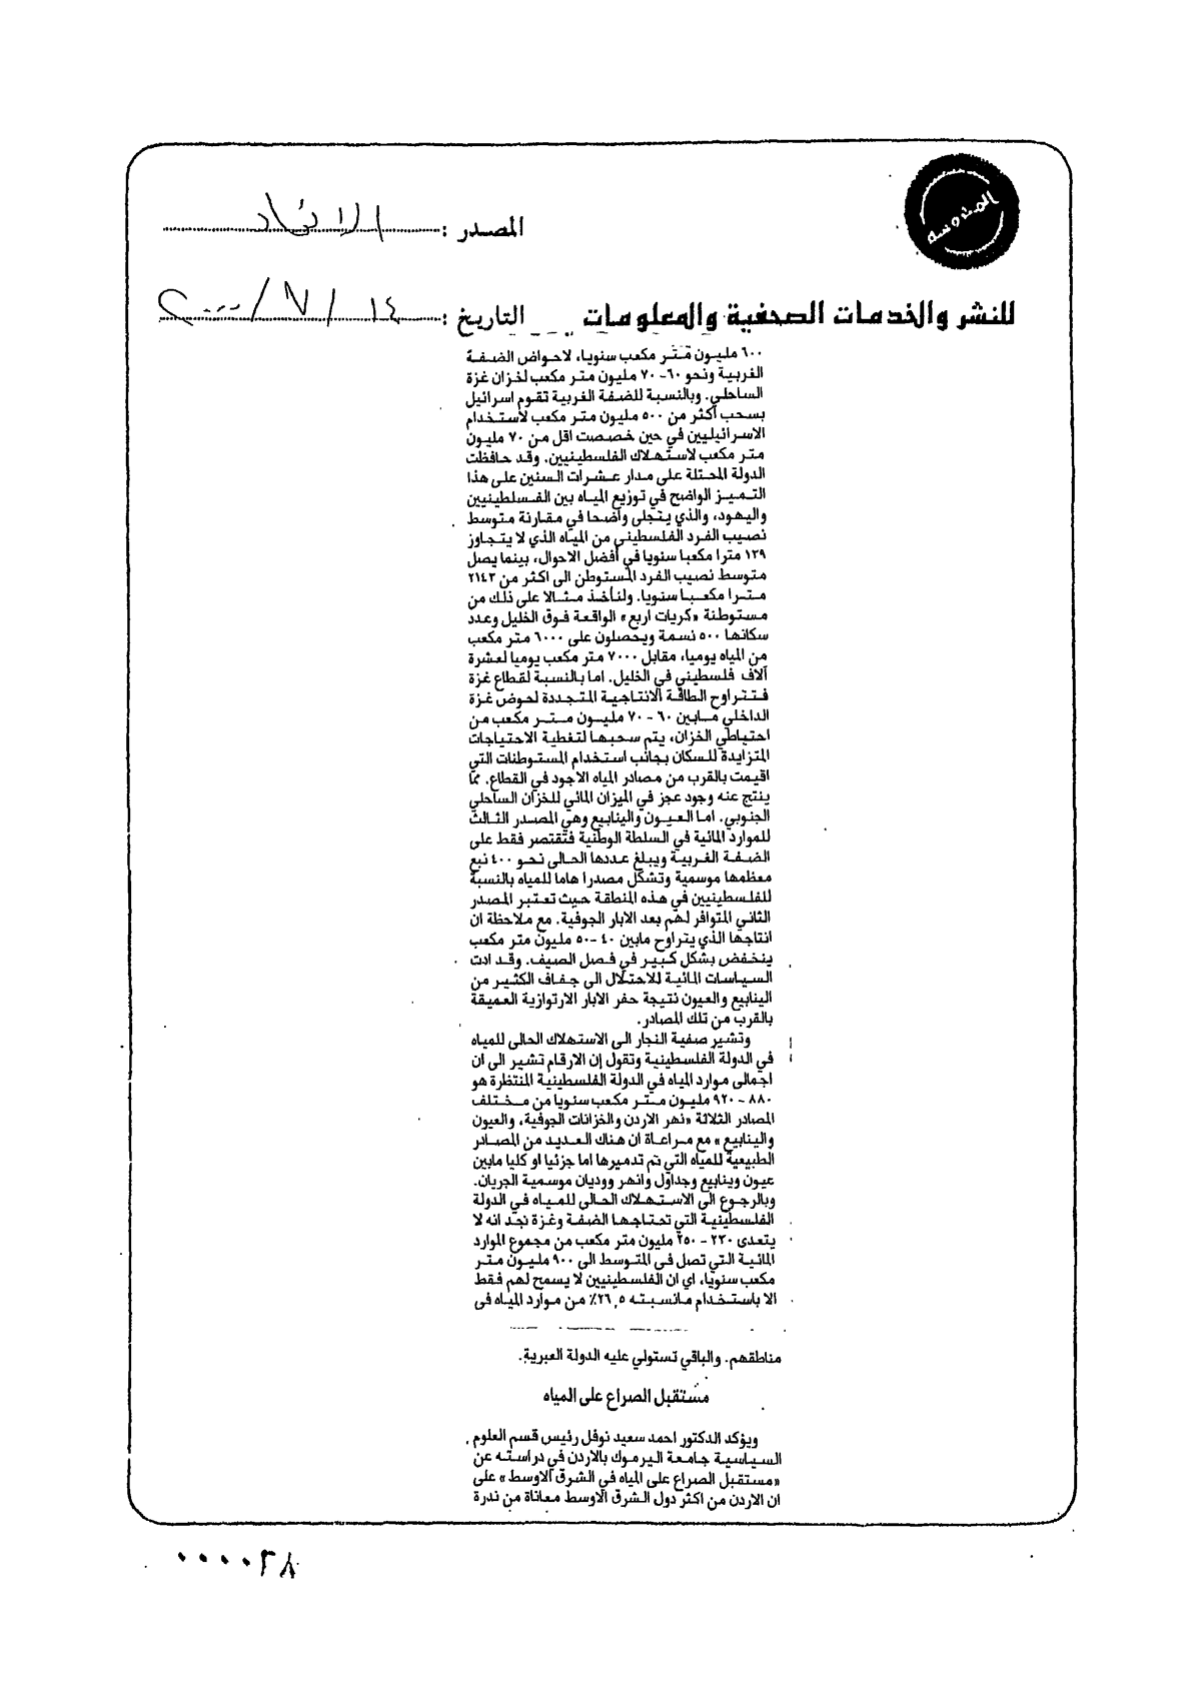 المصدر : الاتحاد
للنشر والخدمات الصحفية والمعلومات التاريخ : ١٤ / ٧ / ٢٠٠٠
٦٠٠ مليون متر مكعب سنويا، لاحواض الضفة
الغربية ونحو ٦٠- ٧٠ مليون متر مكعب لخزان غزة
الساحلي. وبالنسبة للضفة الغربية تقوم اسرائيل
بسحب أكثر من ٥٠٠ مليون متر مكعب لاستخدام
الاسرائيليين في حين خصصت اقل من ٧٠ مليون
متر مكعب لاستهلاك الفلسطينيين. وقد حافظت
الدولة المحتلة على مدار عشرات السنين على هذا
التميز الواضح في توزيع المياه بين الفسلطينيين
واليهود، والذي يتجلى واضحا في مقارنة متوسط
نصيب الفرد الفلسطيني من المياه الذي لا يتجاوز
١٣٩ مترا مكعبا سنويا في أفضل الاحوال، بينما يصل
متوسط نصيب الفرد المستوطن الى اكثر من ٢١٤٣
مترا مكعبا سنويا. ولنأخذ مثالا على ذلك من
مستوطنة «كريات اربع» الواقعة فوق الخليل وعدد
سكانها ٥٠٠ نسمة ويحصلون على ٦٠٠٠ متر مكعب
من المياه يوميا، مقابل ٧٠٠٠ متر مكعب يوميا لعشرة
آلاف فلسطيني في الخليل. اما بالنسبة لقطاع غزة
فتتراوح الطاقة الانتاجية المتجددة لحوض غزة
الداخلي مابين ٦٠ - ٧٠ مليون متر مكعب من
احتياطي الخزان، يتم سحبها لتغطية الاحتياجات
المتزايدة للسكان بجانب استخدام المستوطنات التي
اقيمت بالقرب من مصادر المياه الاجود في القطاع. مما
ينتج عنه وجود عجز في الميزان المائي للخزان الساحلي
الجنوبي. اما العيون والينابيع وهي المصدر الثالث
للموارد المائية في السلطة الوطنية فتقتصر فقط على
الضفة الغربية ويبلغ عددها الحالى نحو ٤٠٠ نبع
معظمها موسمية وتشكل مصدرا هاما للمياه بالنسبة
للفلسطينيين في هذه المنطقة حيث تعتبر المصدر
الثاني المتوافر لهم بعد الابار الجوفية. مع ملاحظة ان
انتاجها الذي يتراوح مابين ٤٠ -٥٠ مليون متر مكعب
ينخفض بشكل كبير في فصل الصيف. وقد ادت
السياسات المائية للاحتلال الى جفاف الكثير من
الينابيع والعيون نتيجة حفر الابار الارتوازية العميقة
بالقرب من تلك المصادر.
وتشير صفية النجار الى الاستهلاك الحالى للمياه
في الدولة الفلسطينية وتقول إن الارقام تشير الى ان
اجمالى موارد المياه في الدولة الفلسطينية المنتظرة هو
٨٨٠ - ٩٢٠ مليون متر مكعب سنويا من مختلف
المصادر الثلاثة «نهر الاردن والخزانات الجوفية، والعيون
والينابيع» مع مراعاة ان هناك العديد من المصادر
الطبيعية للمياه التي تم تدميرها اما جزئيا او كليا مابين
عيون وينابيع وجداول وانهر ووديان موسمية الجريان.
وبالرجوع الى الاستهلاك الحالى للمياه في الدولة
الفلسطينية التي تحتاجها الضفة وغزة نجد انه لا
يتعدى ٢٣٠ - ٢٥٠ مليون متر مكعب من مجموع الموارد
المائية التي تصل في المتوسط الى ٩٠٠ مليون متر
مكعب سنويا، اي ان الفلسطينيين لا يسمح لهم فقط
الا باستخدام مانسبته ٢٦,٥٪ من موارد المياه فى
مناطقهم. والباقي تستولي عليه الدولة العبرية.
مستقبل الصراع على المياه
ويؤكد الدكتور احمد سعيد نوفل رئيس قسم العلوم
السياسية جامعة اليرموك بالاردن في دراسته عن
«مستقبل الصراع على المياه في الشرق الاوسط» على
ان الاردن من اكثر دول الشرق الاوسط معاناة من ندرة